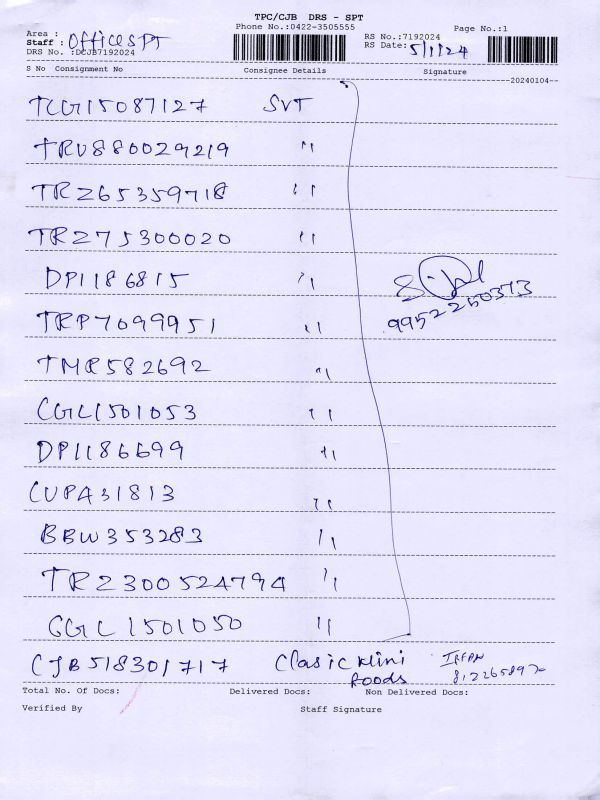 TPC/CJB DRS - SPT
Phone No.:0422-3505555
Page No.:1
Area :
RS No.:7192024
Staff : Office SPT
RS Date: 5/1/24
DRS No. :DCJB7192024
S No Consignment No Consignee Details Signature
20240104
TCG15087127 SVT
TRU880029219 "
TRZ65359718 "
TRZ75300020 "
DP1186815 "
9952250373
TRP7099951 "
TMR582692 "
CGL1501053 "
DP1186699 "
CUPA31813 "
BBW353283 "
TR2300524794 "
CGL1501050 "
CJB518301717 Clasic Mini Foods IRFAN
Total No. Of Docs: Delivered Docs: Non Delivered Docs:
Verified By Staff Signature